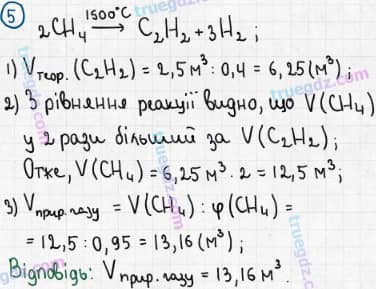 5
2CH₄ 1500°C→ C₂H₂ + 3H₂ ;
1) Vтеор.(C₂H₂) = 2,5 м³ : 0,4 = 6,25 (м³) ;
2) З рівняння реакції видно, що V(CH₄)
у 2 рази більший за V(C₂H₂) ;
Отже, V(CH₄) = 6,25 м³ · 2 = 12,5 м³ ;
3) Vприр. газу = V(CH₄) : φ(CH₄) =
= 12,5 : 0,95 = 13,16 (м³) ;
Відповідь: Vприр. газу = 13,16 м³.
truegdz.com